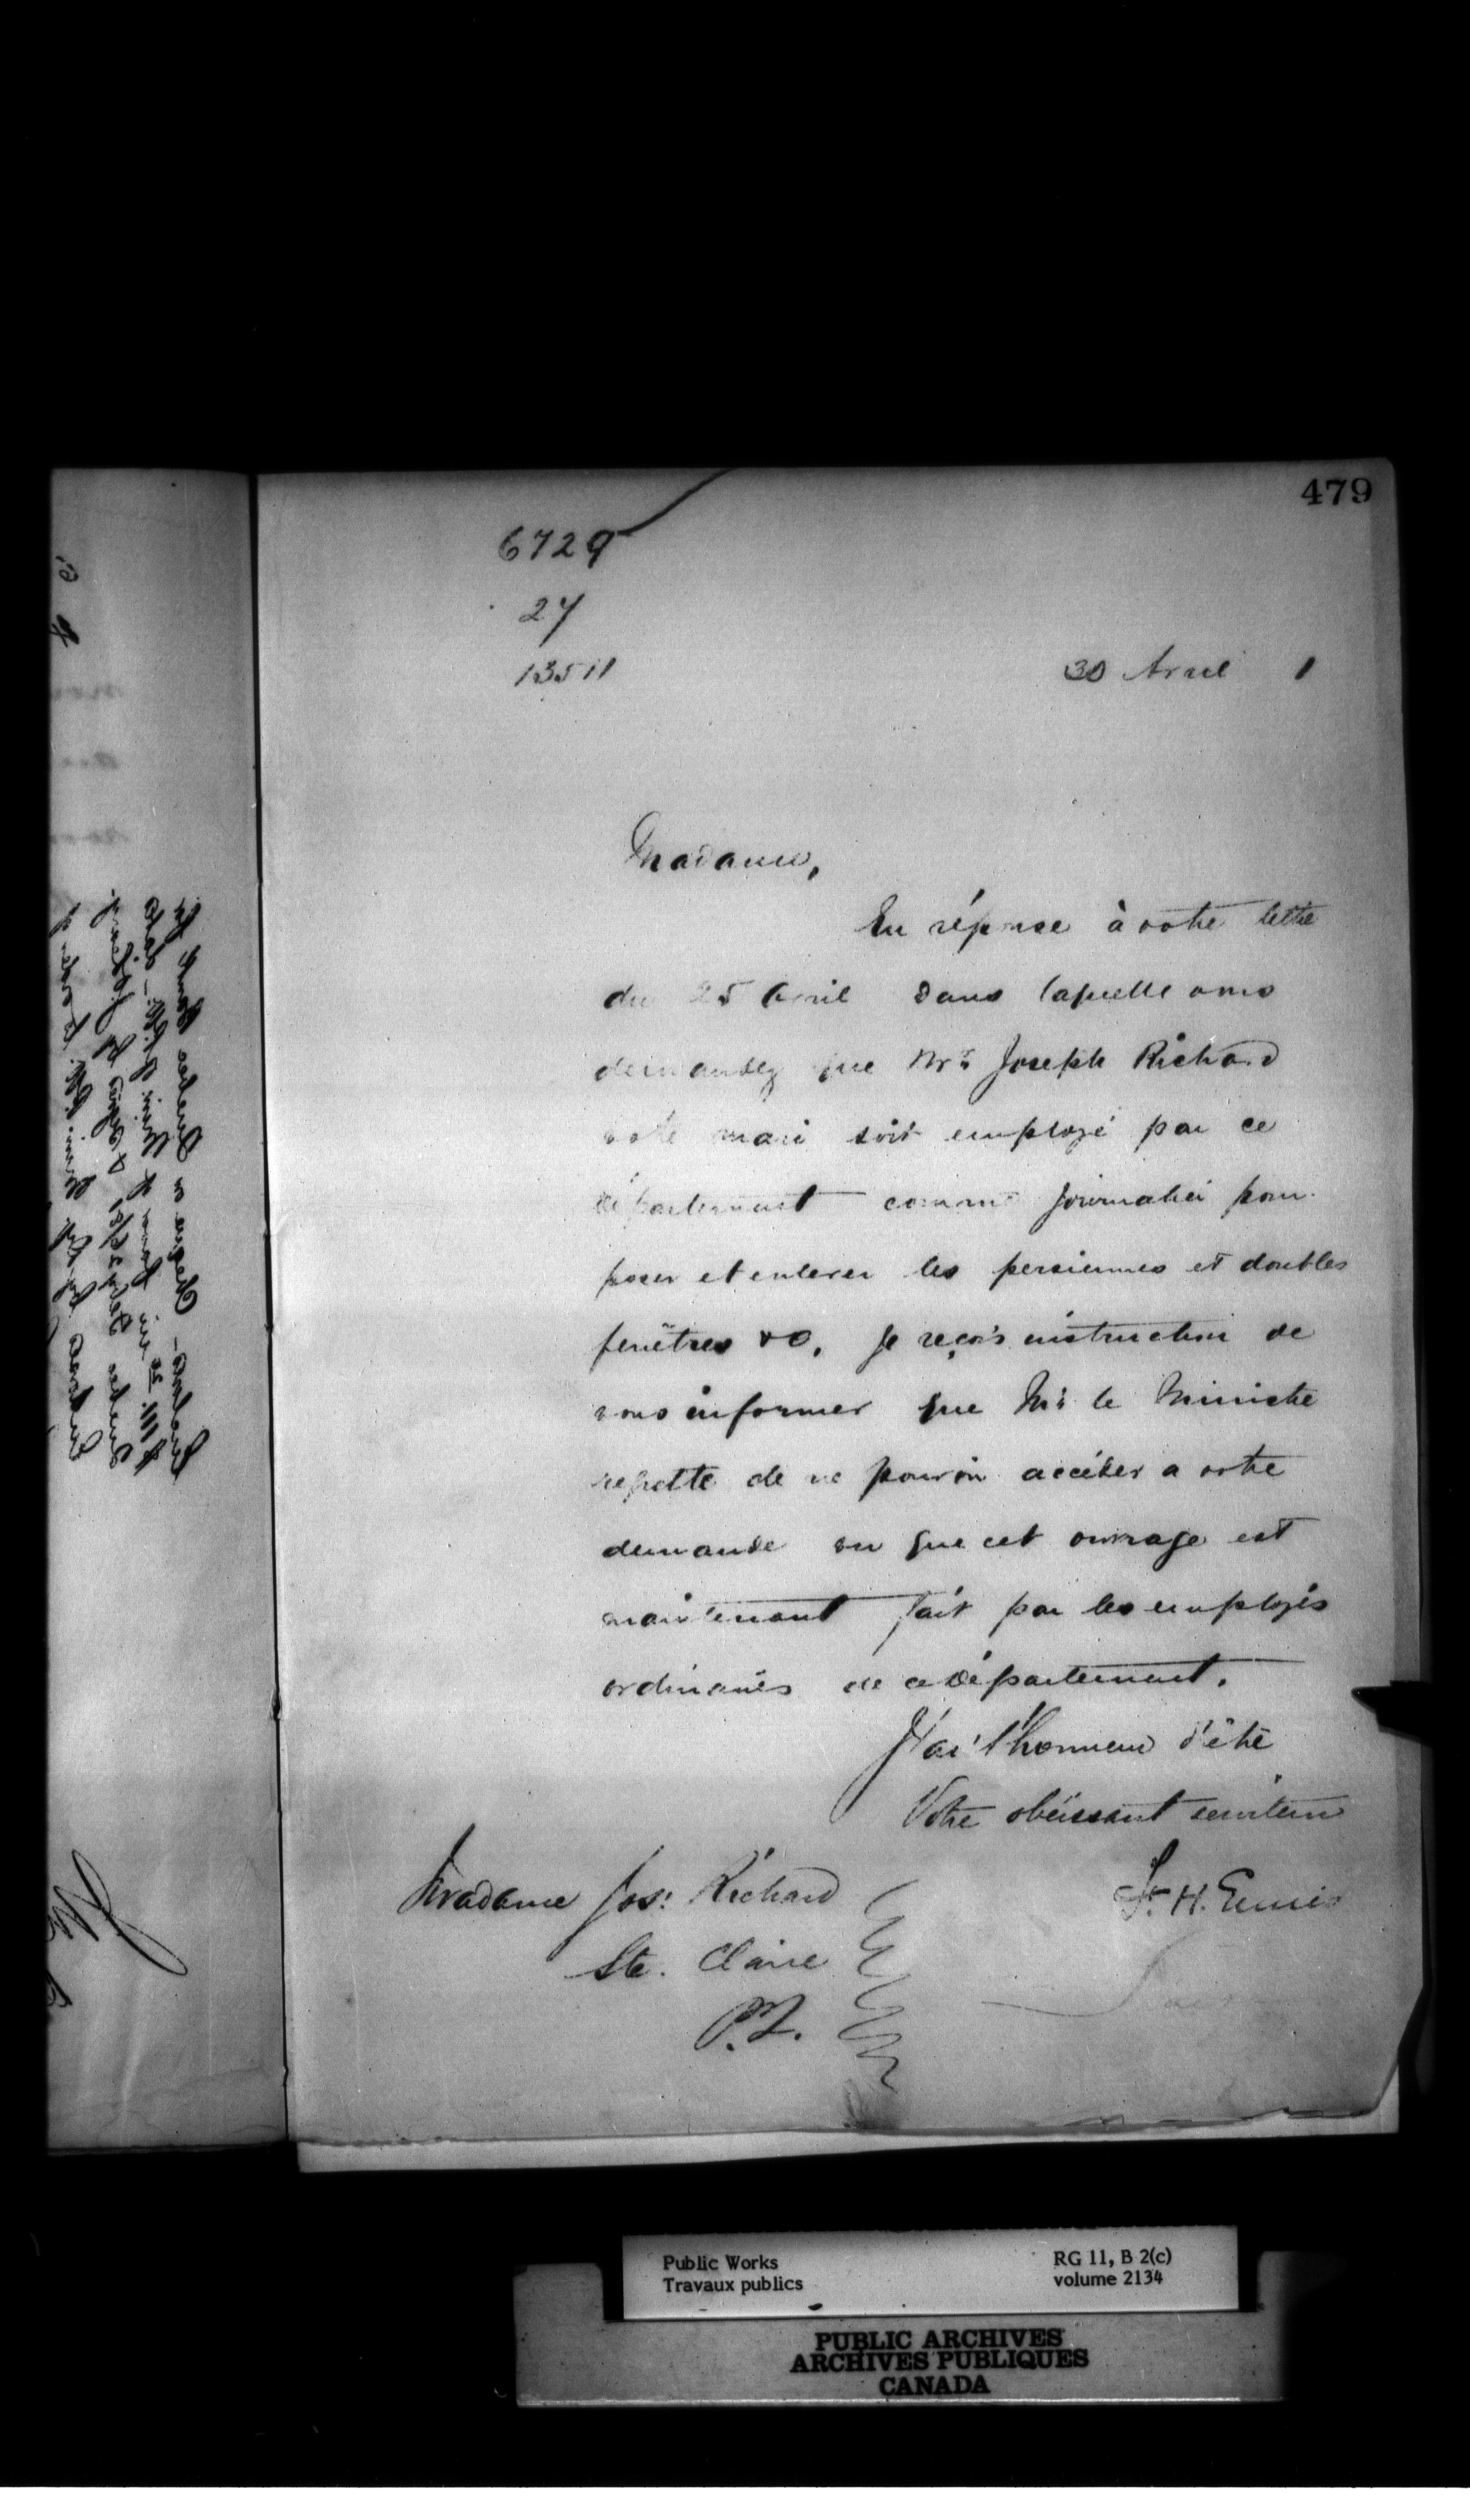 479
6729
27
13511
30 Avril 1
Madame,
En réponse à votre lettre
du 25 Avril dans laquelle vous
demandez que Mr. Joseph Richard
votre mari soit employé par ce
département comme journalier pour
poser et enlever les persiennes et doubles
fenêtres &c, je reçois instruction de
vous informer que Mr. le Ministre
regrette de ne pouvoir accéder a votre
demande vu que cet ouvrage est
maintenant fait par les employés
ordinaires de ce département.
J'ai l'honneur d'être
Votre obéissant serviteur
F. H. Ennis
Madame Jos: Richard
Ste. Claire
P.Q.
Public Works
Travaux publics
RG 11, B 2(c)
volume 2134
PUBLIC ARCHIVES
ARCHIVES PUBLIQUES
CANADA